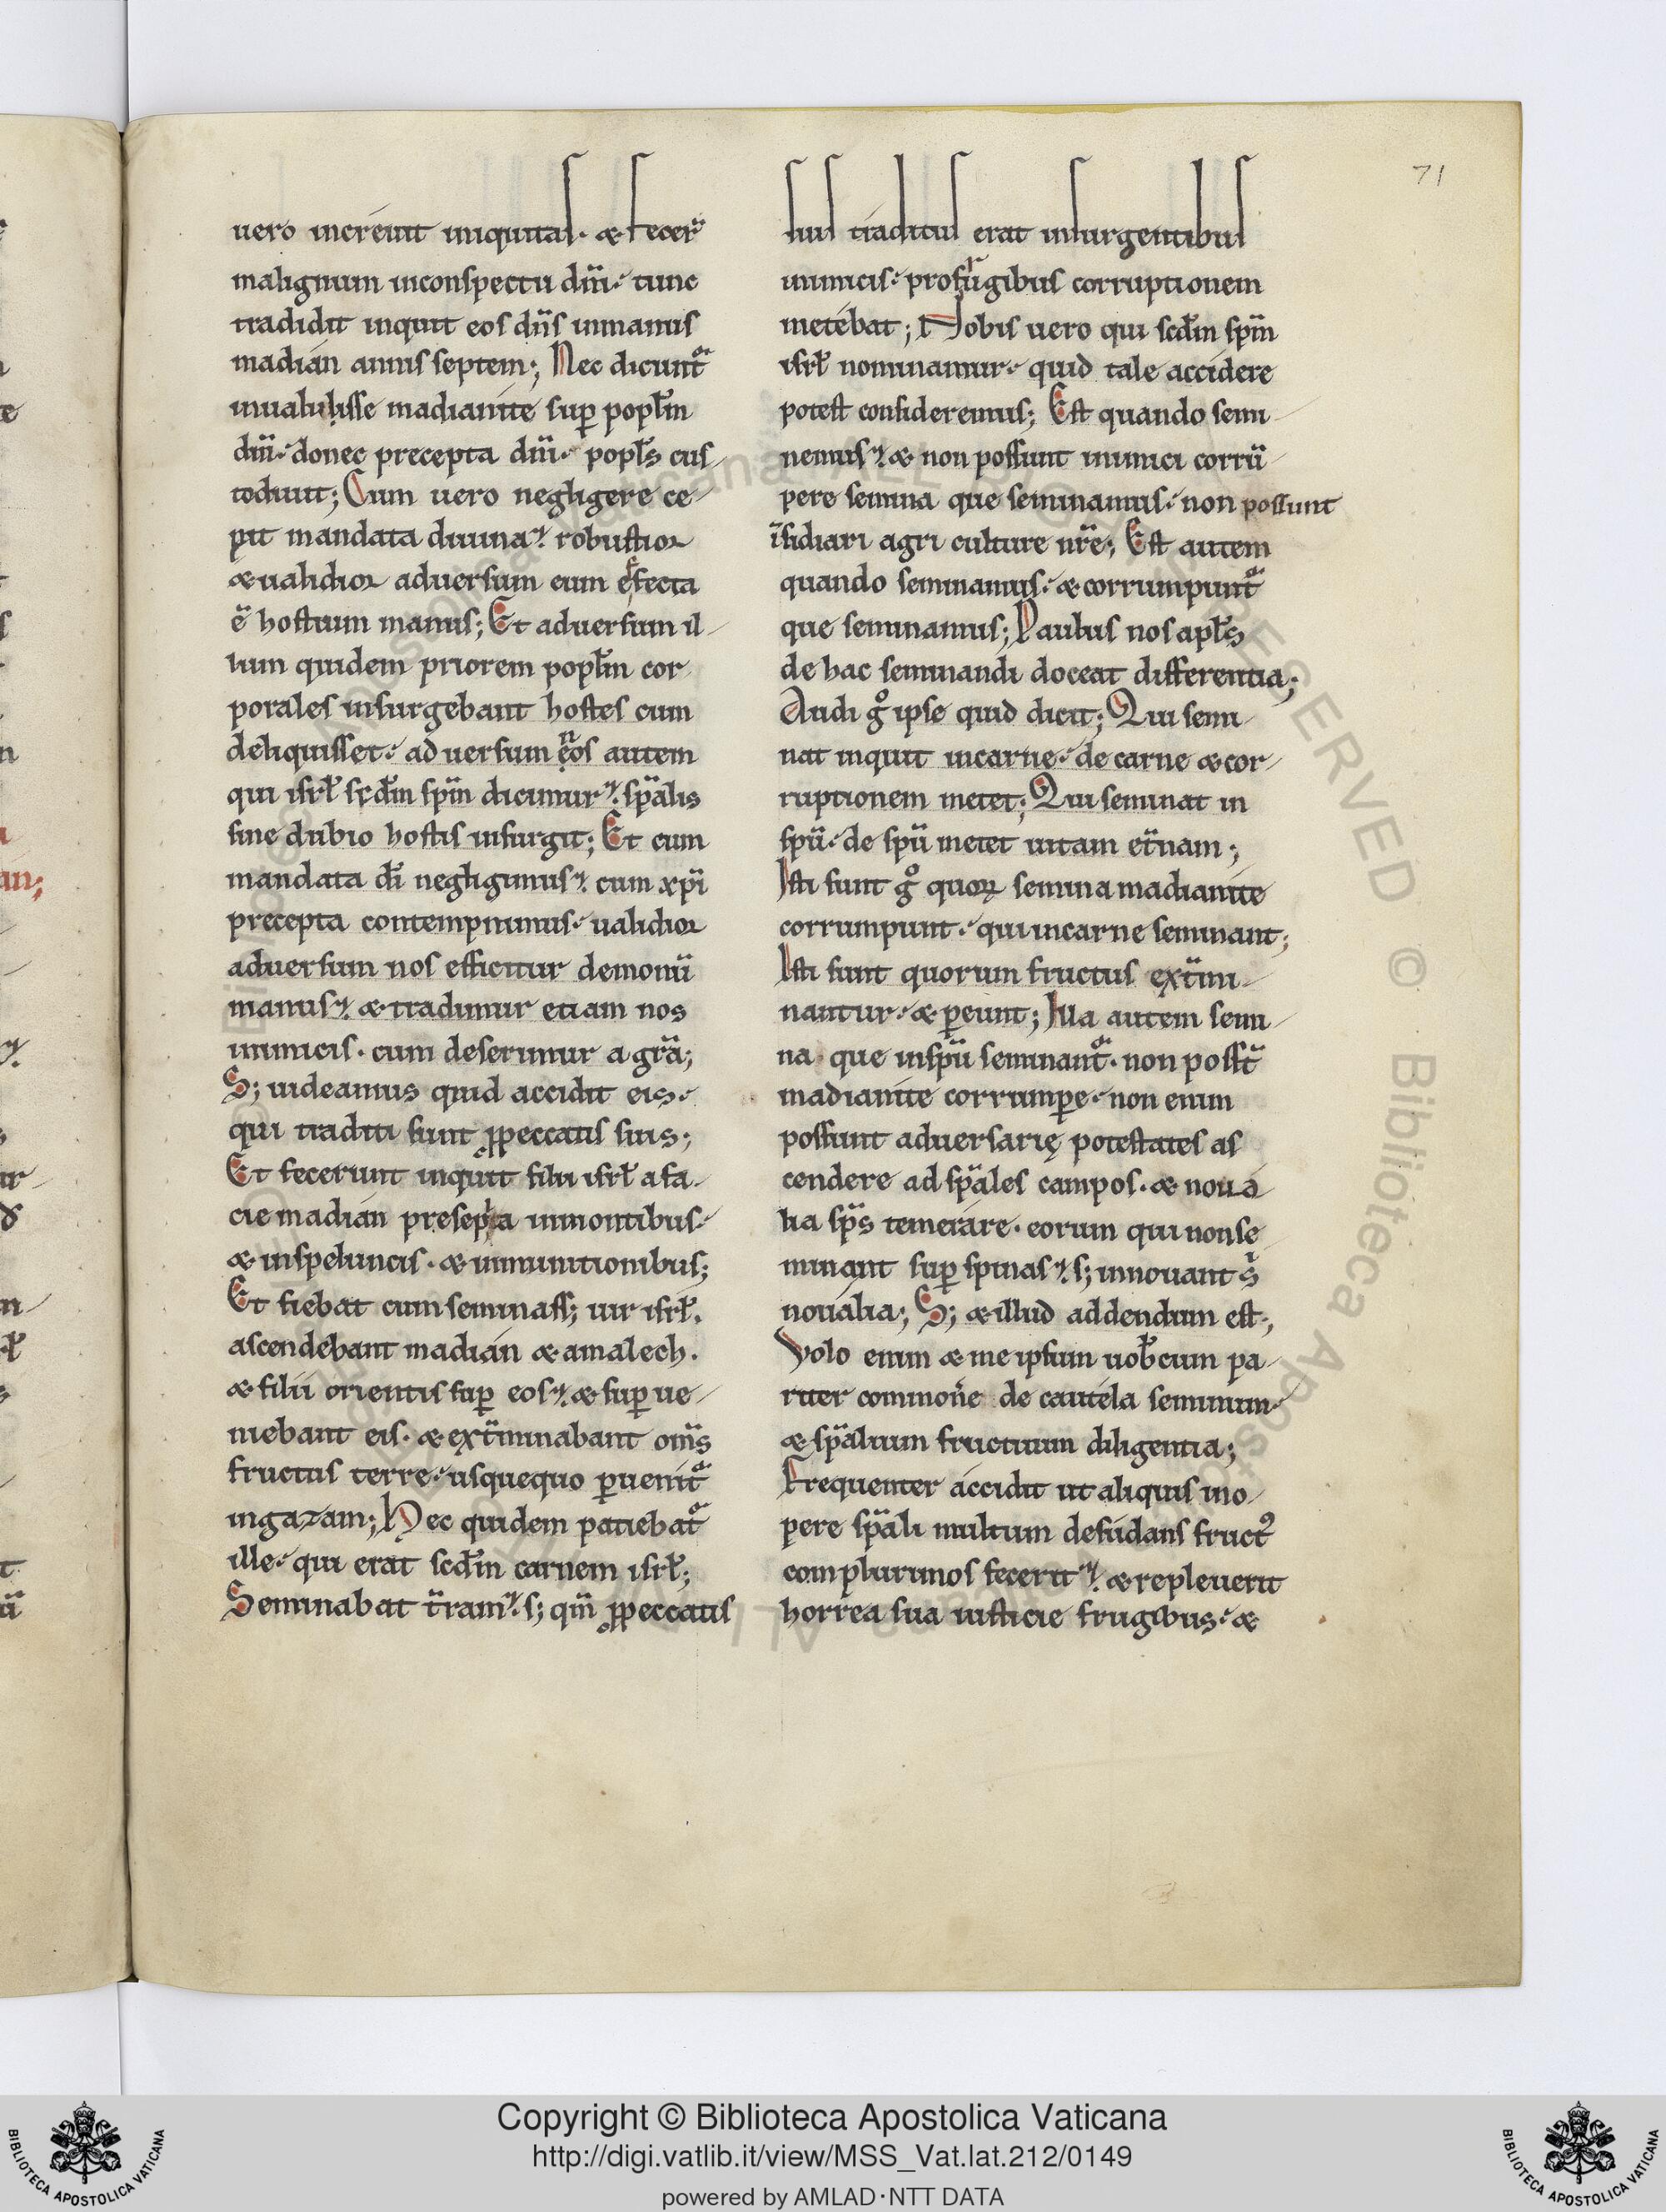 uero increuit iniquitas. & fecer̄
malignum inconspectu dn̄i. tunc
tradidit inquit eos dn̄s inmanus
madián annis septem; Nec dicunt᷑
inualuisse madianite sup̱ popl̄m
dn̄i. donec precepta dn̄i. popl̄s cus-
todiuit; Cum uero negligere ce-
pit mandata diuina. robustior
& ualidior aduersum eum effecta
ē hostium manus; Et aduersum il-
lum quidem priorem popl̄m cor
porales insurgebant hostes cum
deliquisset. aduersum nos autem
qui isrl̄ scd̄m sp̄m dicimur. sp̄alis
sine dubio hostis insurgit; Et cum
mandata dī negligimus. cum xp̄i
precepta contempnimus. ualidior
aduersum nos efficitur demonū
manus. & tradimur etiam nos
inimicis. cum deserimur a grā;
S; uideamus quid accidit eis.
qui traditi sunt ꝓpeccatis suis;
Et fecerunt inquit filii isrl̄ a fa-
cie madián presepia inmontibus.
& inspeluncis. & inmunitionibus;
Et fiebat cum seminass; uir isrl̄.
ascendebant madián & amalech.
& filii orientis sup̱ eos. & sup̱ ue-
niebant eis. & ext̄minabant om̄s
fructus terre. usquequo ꝑuenit᷑
ingazam; Hec quidem patiebat᷑
ille. qui erat scd̄m carnem isrl̄;
Seminabat t̄ram. s; qm̄ ꝓpeccatis
suis traditus erat insurgentibus
inimicis. pro frugibus corruptionem
metébat; Nobis uero qui scd̄m sp̄m
isrl̄ nominamur. quid tale accidere
potest consideremus; Est quando semi-
nemus. & non possunt inimici corrū-
pere semina que seminamus. non possunt
īsidiari agri culture nr̄e; Est autem
quando seminamus. & corrumpunt᷑
que seminamus; Paulus nos apl̄s
de hac seminandi doceat differentia;
Audi gͦ ipse quid dicit; Qui semi-
nat inquit incarne. de carne & cor-
ruptionem metet; Qui seminat in
spū. de spū metet uitam et̄nam;
Isti sunt gͦ quoꝝ semina madianite
corrumpunt. qui incarne seminant;
Isti sunt quorum fructus ext̄mi-
nantur. & ꝑeunt; Illa autem semi-
na que inspū seminant᷑. non poss̄t
madianite corrumꝑe. non enim
possunt aduersarię potestates as
cendere ad sp̄ales campos. & noua
lia sp̄s temeráre. eorum qui non se
minant sup̱ spinas. s; innouant sͥ
noualia; S; & illud addendum est;
Volo enim & me ipsum uob̄cum pa-
riter common̄e de cautéla seminum
& sp̄alium fructuum diligentia;
Frequenter accidit ut aliquis ino-
pere sp̄ali multum desudans fructꝰ
complurimos fecerit. & repleuerit
horrea sua iusticie frugibus. &
71
Copyright © Biblioteca Apostolica Vaticana
http://digi.vatlib.it/view/MSS_Vat.lat.212/0149
powered by AMLAD·NTT DATA
BIBLIOTECA APOSTOLICA VATICANA
BIBLIOTECA APOSTOLICA VATICANA